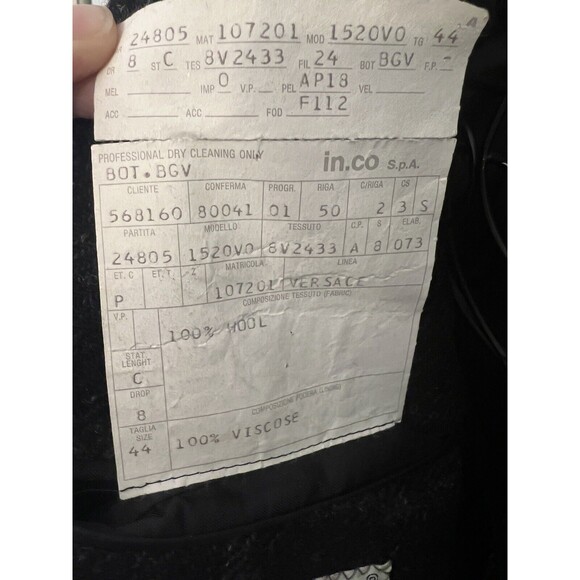 24805 MAT 107201 MOD 1520V0 TG 44
DR 8 ST C TES 8V2433 FIL 24 BOT BGV F.P. -
MEL IMP 0 V.P. PEL AP18 VEL
ACC ACC FOD F112
PROFESSIONAL DRY CLEANING ONLY in.co S.p.A.
BOT.BGV
CLIENTE CONFERMA PROGR. RIGA C/RIGA CS
568160 80041 01 50 2 3 S
PARTITA MODELLO TESSUTO C.P. 8 ELAB.
24805 1520V0 8V2433 A 8 073
ET. C ET. T. Z MATRICOLA LINEA
P 107201 VERSACE
V.P. COMPOSIZIONE TESSUTO (FABRIC)
100% WOOL
STAT.
LENGHT
C
DROP
8 COMPOSIZIONE FODERA (LINING)
TAGLIA
SIZE
44 100% VISCOSE